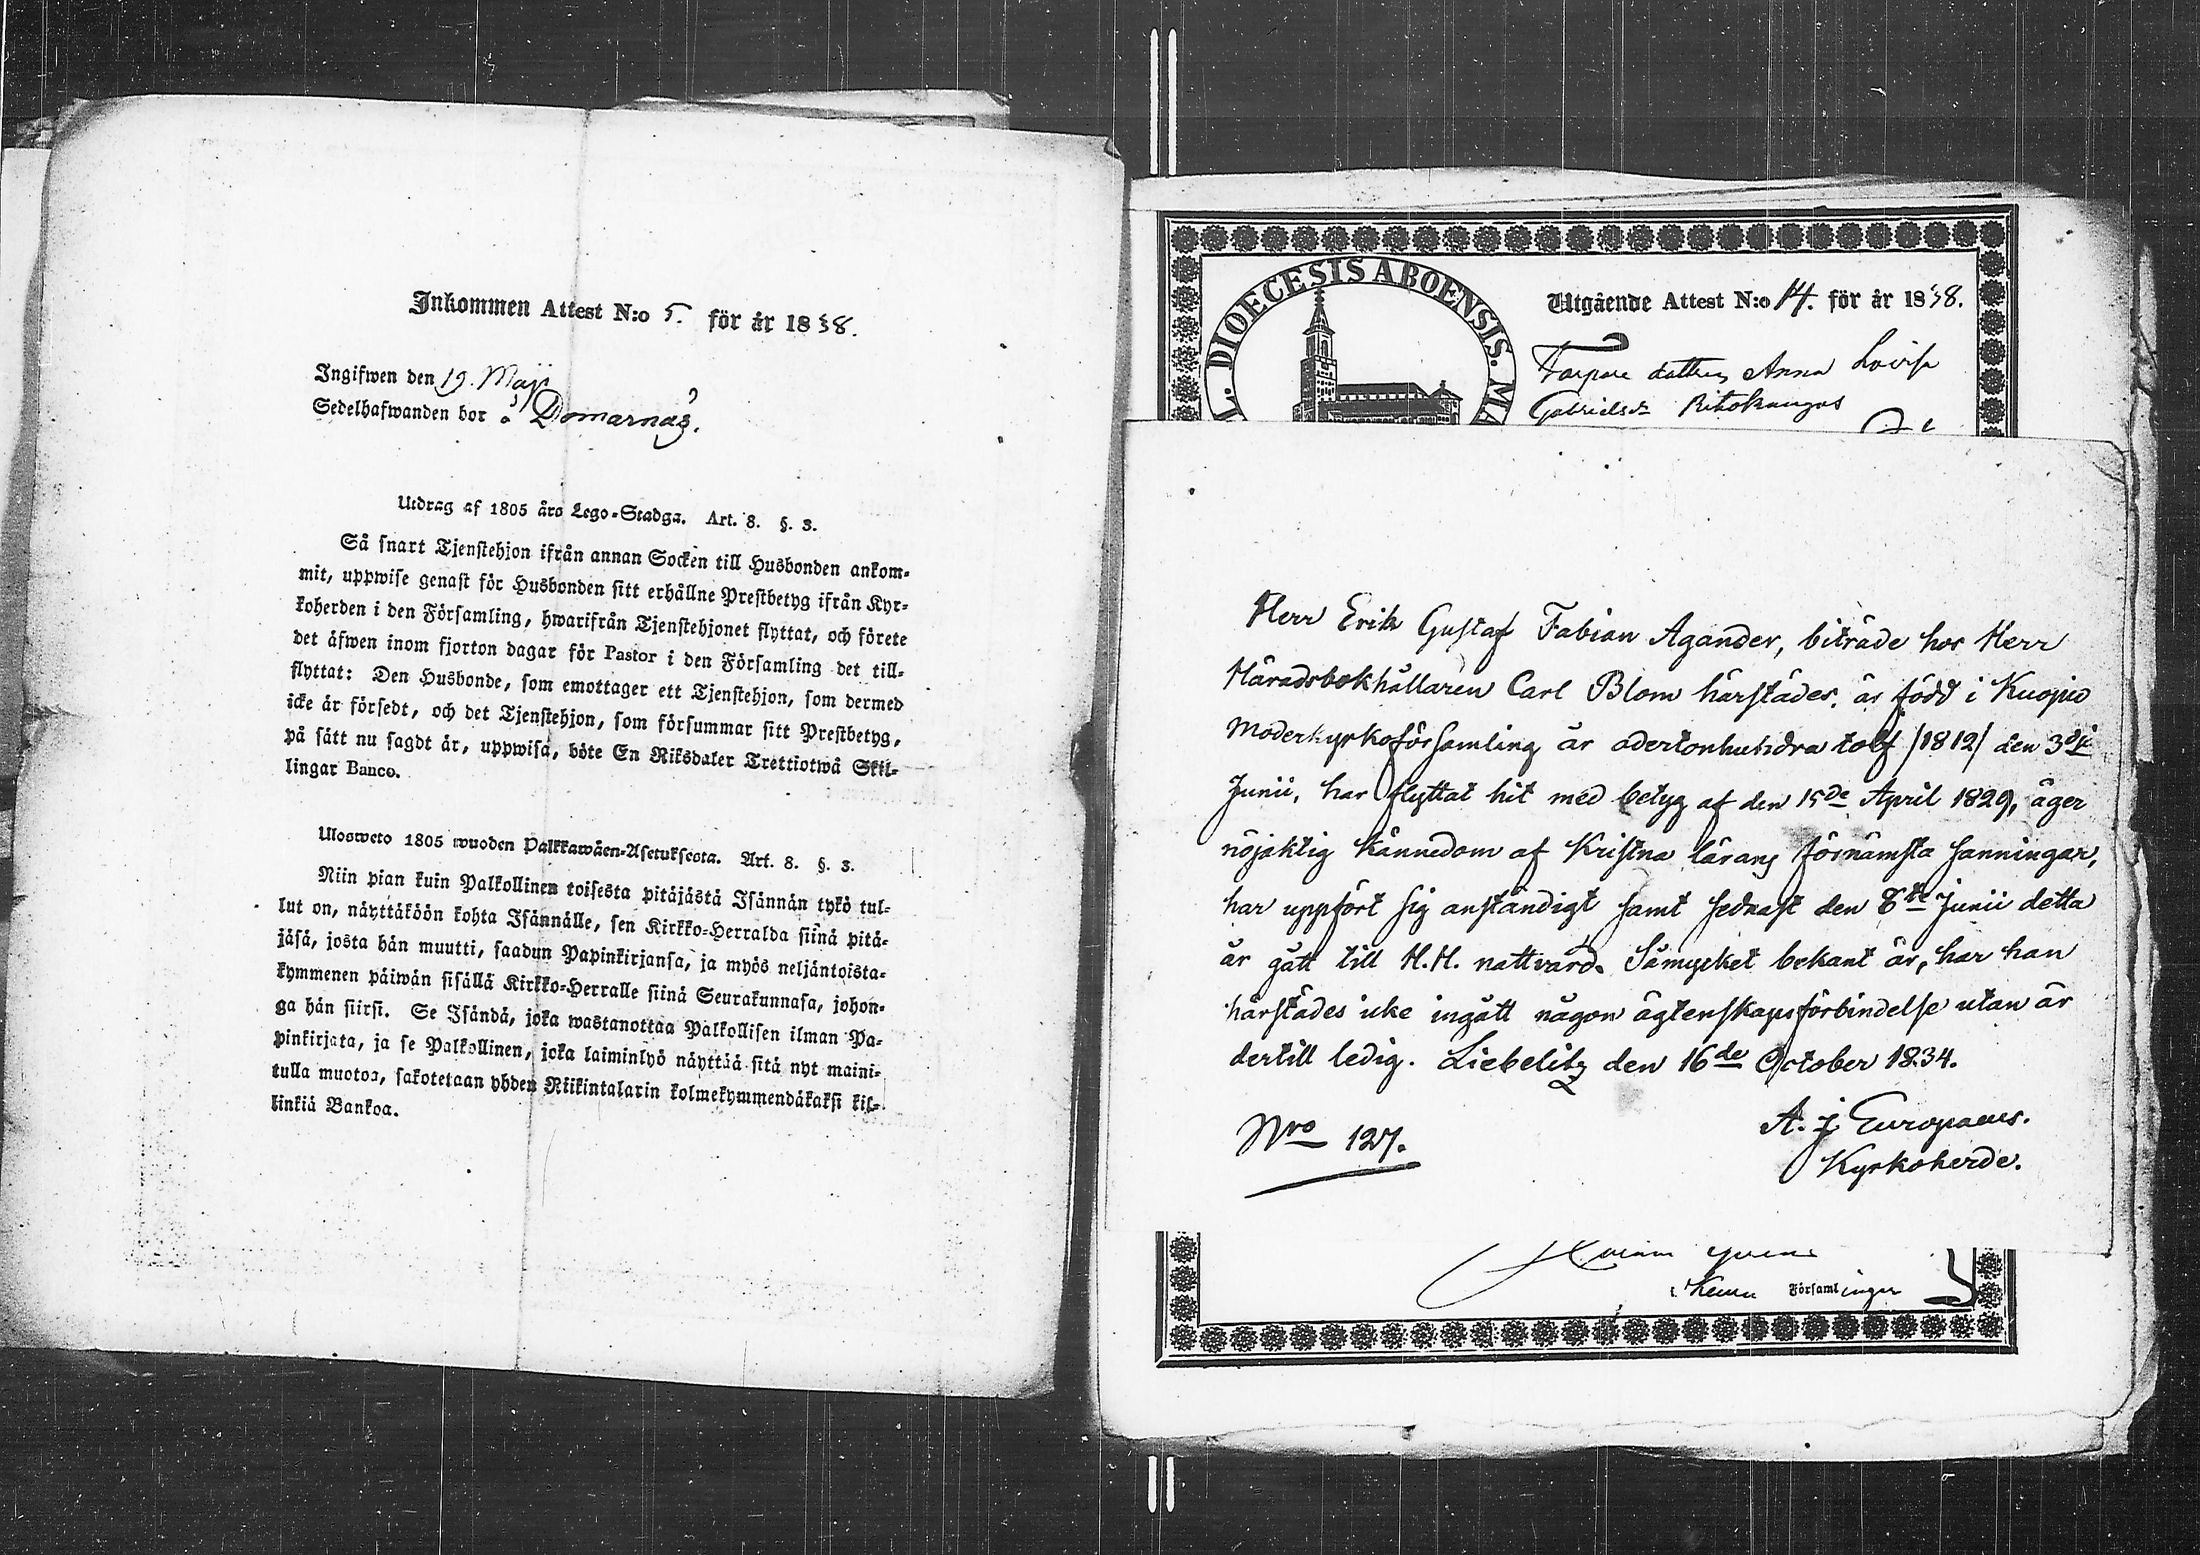 Inkommen Attest N:o 5. för år 1838.
Ingifwen den 19. Maji
Sedelhafwanden bor å Domarnäs.
Utdrag af 1805 års Lego-Stadga. Art. 8. §. 3.
Så snart Tjenstehjon ifrån annan Socken till Husbonden ankom-
mit, uppwise genast för Husbonden sitt erhållne Prestbetyg ifrån Kyr-
koherden i den Församling, hwarifrån Tjenstehjonet flyttat, och förete
det äfwen inom fjorton dagar för Pastor i den Församling det till-
flyttat: Den Husbonde, som emottager ett Tjenstehjon, som dermed
icke är försedt, och det Tjenstehjon, som försummar sitt Prestbetyg,
på sätt nu sagdt är, uppwisa, böte En Riksdaler Trettiotwå Skil-
lingar Banco.
Ulosweto 1805 wuoden Palkkawäen-Asetuksesta. Art. 8. §. 3.
Niin pian kuin Palkollinen toisesta pitäjästä Isännän tykö tul-
lut on, näyttäköön kohta Isännälle, sen Kirkko-Herralda siinä pitä-
jäsä, josta hän muutti, saadun Papinkirjansa, ja myös neljäntoista-
kymmenen päiwän sisällä Kirkko-Herralle siinä Seurakunnasa, johon-
ga hän siirsi. Se Isändä, joka wastanottaa Palkollisen ilman Pa-
pinkirjata, ja se Palkollinen, joka laiminlyö näyttää sitä nyt maini-
tulla muotoa, sakotetaan yhden Riikintalarin kolmekymmendäkaksi kil-
linkiä Bankoa.
DIOECESIS ABOENSIS. MA
Utgående Attest N:o 14. för år 1838.
Torpare dottren Anna Lovisa
Gabrielsdr Ritokangas
Herr Erik Gustaf Fabian Agander, biträde hos Herr
Häradsbokhållaren Carl Blom härstädes, är född i Kuopio
Moderkyrkoförsamling år adertonhundra tolf /1812/ den 3dje
Junii, har flyttat hit med betyg af den 15de April 1829, äger
nöjaktig kännedom af Kristna lärans förnämsta sanningar,
har uppfört sig anständigt samt sednast den 8de Junii detta
år gått till H.H. nattvard. Såmycket bekant är, har han
härstädes icke ingått någon ägtenskapsförbindelse utan är
dertill ledig. Liebelitz den 16de October 1834.
Nro 127.
A. J Europaeus.
Kyrkoherde.
i Kemi Församlingar